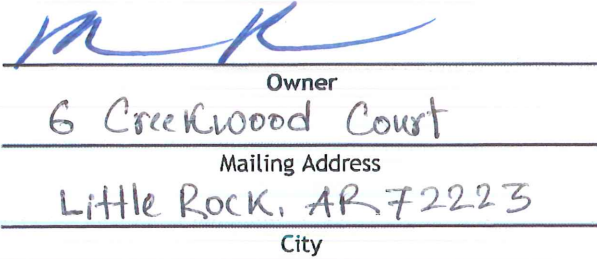 Owner
6 Creekwoood Court
Mailing Address
Little Rock, AR 72223
City